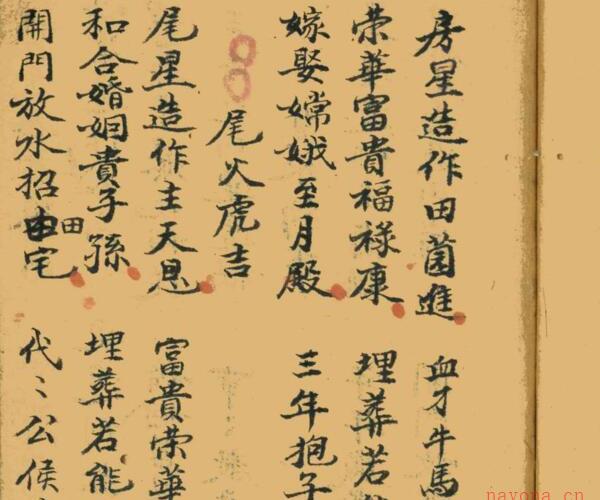 房星造作田茵進
血才牛馬
荣華富貴福禄康
埋葬若
嫁娶嫦娥至月殿
三年抱子
尾火虎吉
尾星造作主天恩
富貴荣華
和合婚姻貴子孫
埋葬若能
開門放水招田宅
代〻公侯
nayona.cn